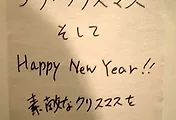 メリークリスマス
そして
Happy New Year!!
素敵なクリスマスを